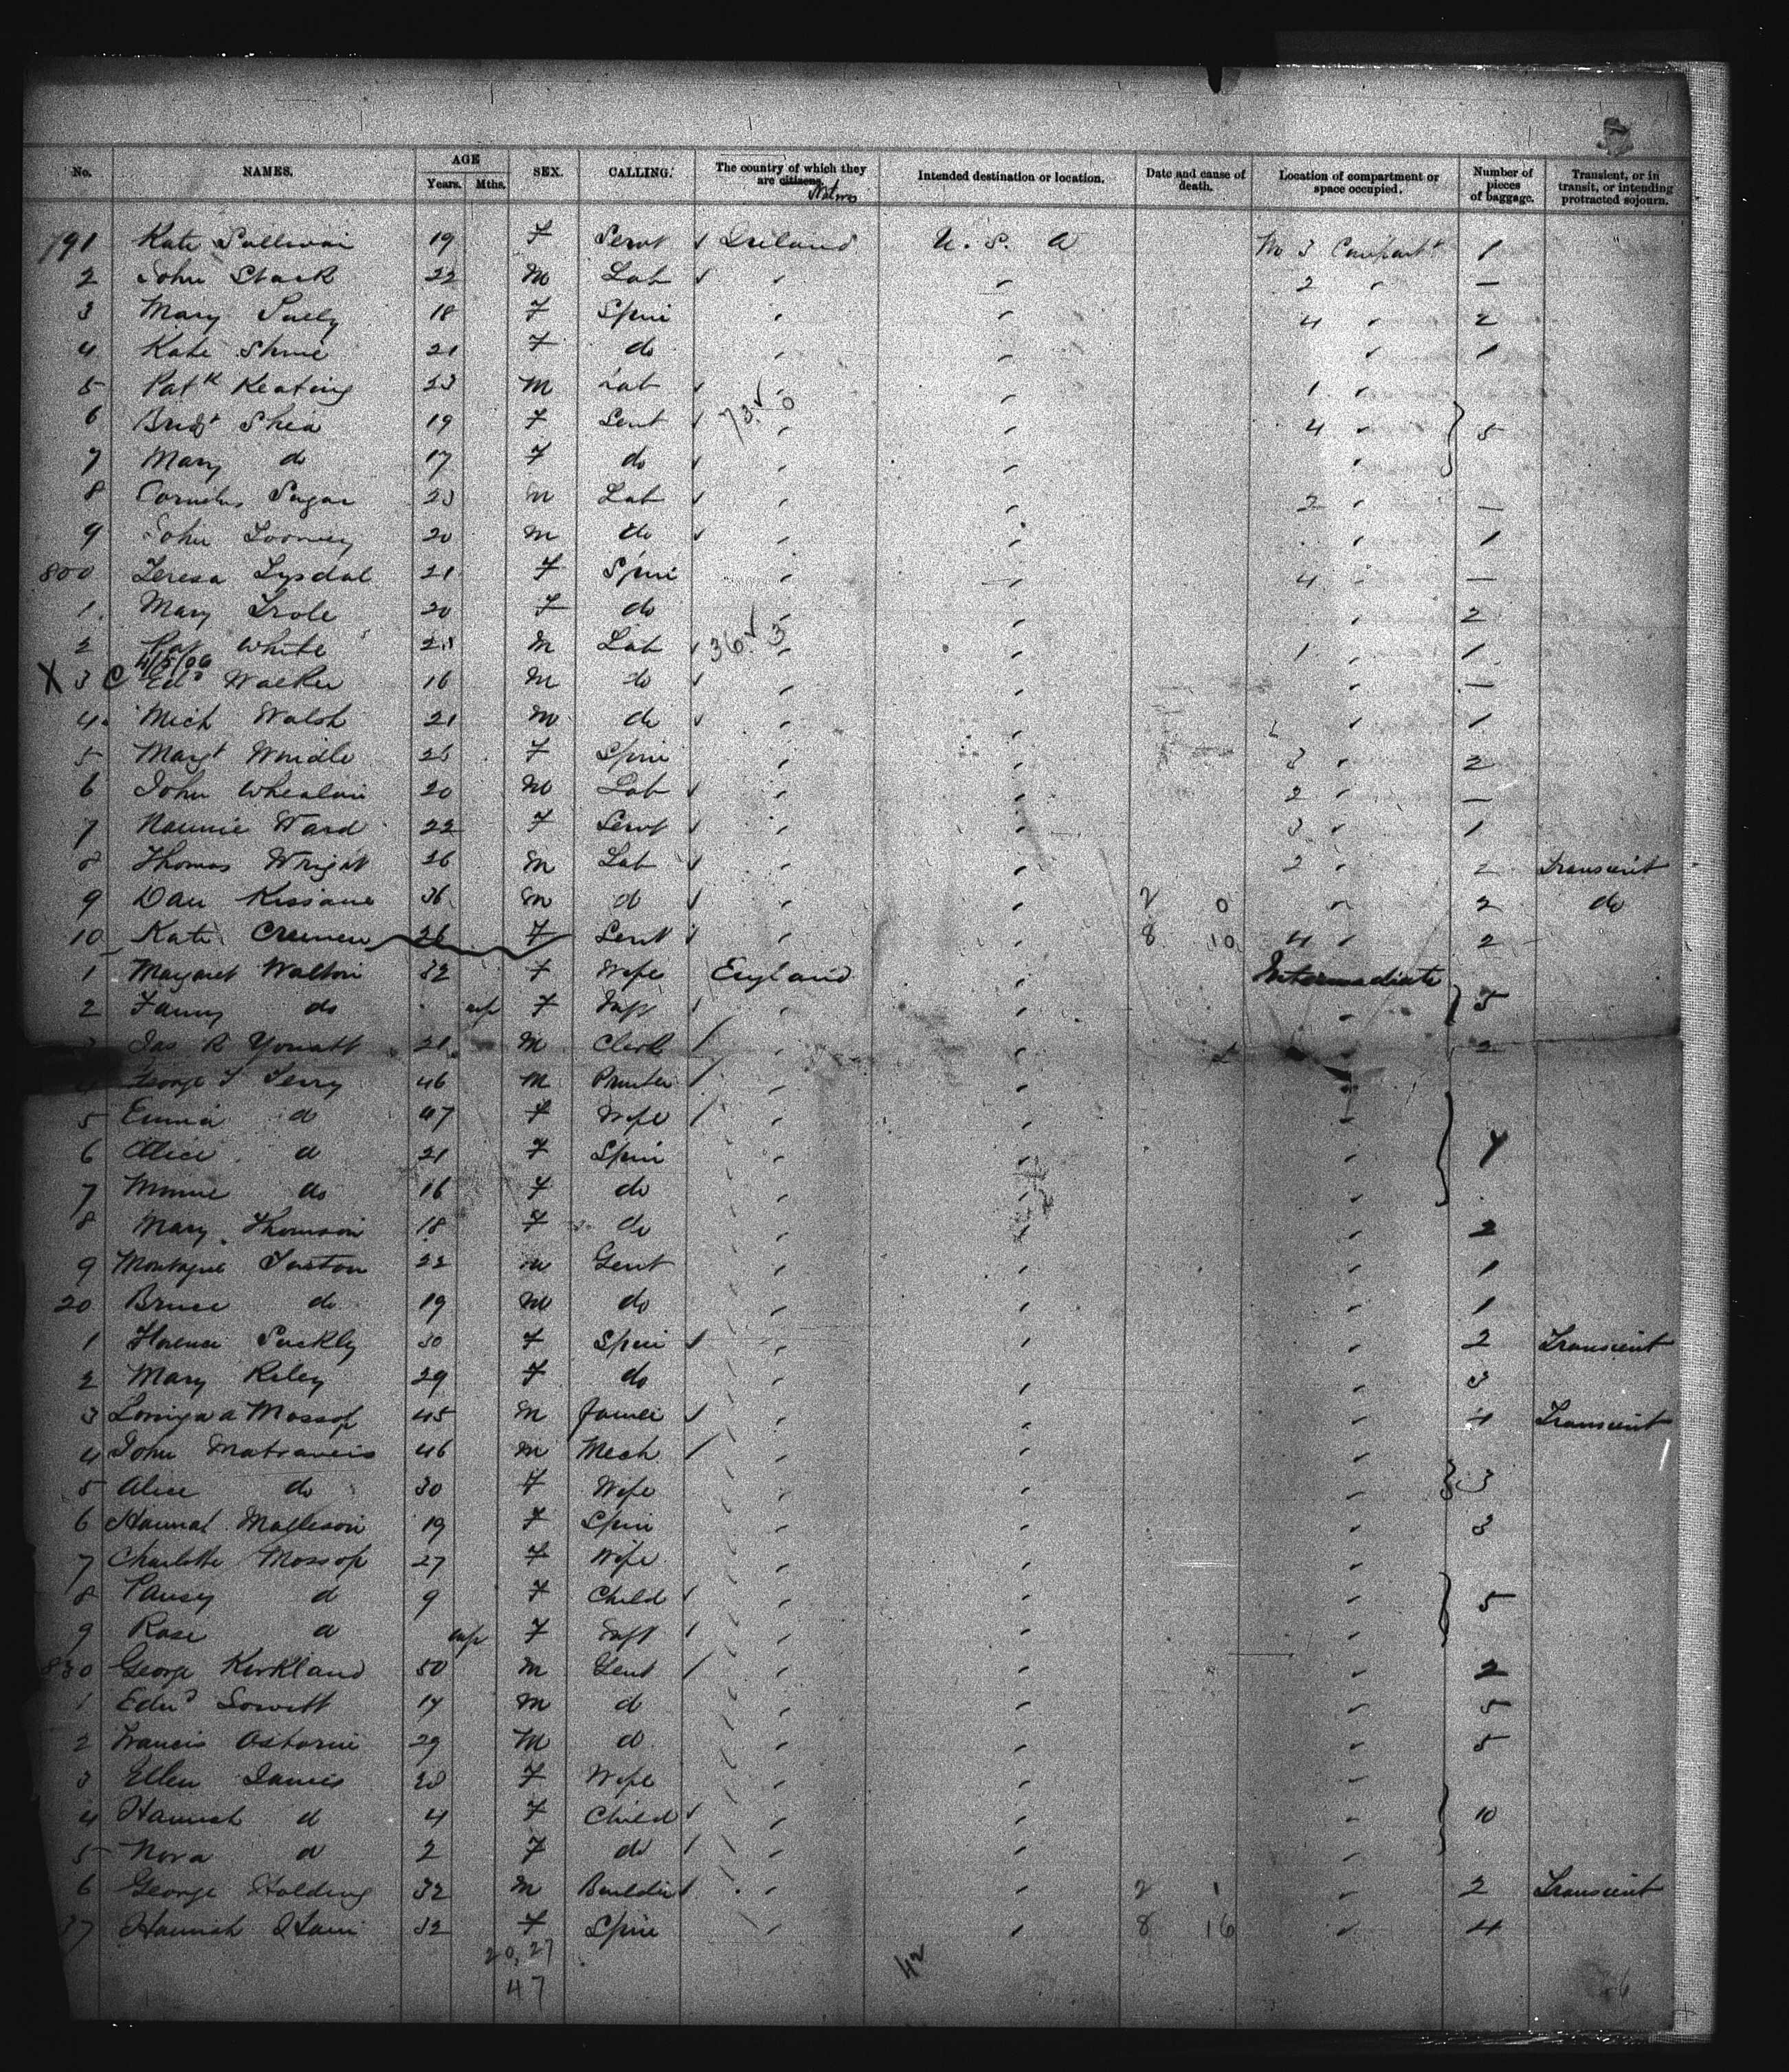 No. NAMES. AGE Years. Mths. SEX. CALLING. The country of which they are citizens. Natives Intended destination or location. Date and cause of death. Location of compartment or space occupied. Number of pieces of baggage. Transient, or in transit, or intending protracted sojourn.
791 Kate Sullivan 19 F Servt Ireland U. S. A No 3 Compart 1
2 John Stack 22 M Lab " " 2 " —
3 Mary 18 F Spin " " 4 " 2
4 Kate 21 F do " " " 1
5 Patk Keating 23 M Lab " " 1 "
6 Bridt Shea 19 F Servt " " 4 " 5
7 Mary do 17 F do " " "
8 Cornelus 23 M Lab " " 2 " —
9 John Looney 20 M do " " " 1
800 Teresa Lysdal 21 F Spin " " 4 " —
1 Mary 20 F do " " " 2
2 Pat White 23 M Lab " " 1 " 1
X 3 C 4/5/06 Edd Walker 16 M do " " " —
4 Mich Walsh 21 M do " " " 1
5 Margt Windle 25 F Spin " " 3 " 2
6 John Whealan 20 M Lab " " 2 " —
7 Nannie Ward 22 F Servt " " 3 " 1
8 Thomas Wright 26 M Lab " " 2 " 2 Transient
9 Dan Kissane 36 M do " " 2 0 " 2 do
10 Kate 26 F Servt " " 8 10 4 " 2
1 Margaret Walton 32 F Wife England " Intermediate
2 Fanny do inf F Inft " " " 5
3 Jas R Youatt 21 M Clerk " " 2
4 George T Terry 46 M Printer " " "
5 Emma do 47 F Wife " " "
6 Alice do 21 F Spin " " "
7 Minnie do 16 F do " " "
8 Mary Thomson 18 F do " " " 2
9 Montague 22 M Gent " " " 1
20 Bruce do 19 M do " " " 1
1 Florence 30 F Spin " " " 2 Transient
2 Mary Riley 29 F do " " " 3
3 Mossop 45 M " " " 4 Transient
4 John Matravers 46 M Mech " " "
5 Alice do 30 F Wife " " " 3
6 Hannah 19 F Spin " " " 3
7 Charlotte Mossop 27 F Wife " " "
8 Pansy do 9 F Child " " " 5
9 Rose do inf F Inft " " "
830 George Kirkland 50 M Gent " " " 2
1 Edwd 17 M do " " " 5
2 Francis Osborne 29 M do " " " 5
3 Ellen 28 F Wife " " "
4 Hannah do 4 F Child " " " 10
5 Nora do 2 F do " " "
6 George Holding 32 M Builder " " 2 1 " 2 Transient
37 Hannah 32 F Spin " " 8 16 " 4
20,27 42
47